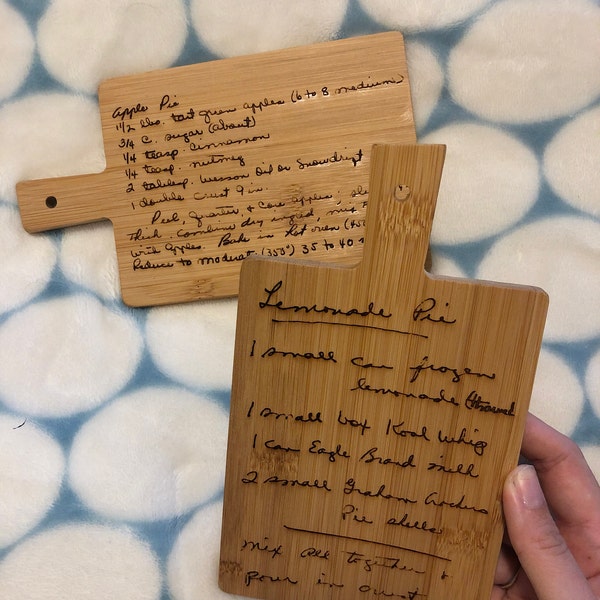 Apple Pie
1 1/2 lbs. tart green apples (6 to 8 medium)
3/4 c. sugar (about)
1/4 teasp. cinnamon
1/4 teasp. nutmeg
2 tablesp. Wesson Oil or Snowdrift
1 double Crust 9 in.
Peel, Quarter & Core apples; sl
thick. Combine dry ingred, mix
with apples. Bake in Hot oven (45
Reduce to moderate (350°) 35 to 40
Lemonade Pie
1 small can frozen
lemonade (thawed
1 small box Kool Whip
1 can Eagle Brand milk
2 small Graham Crackers
Pie shells
mix all together &
pour in crust